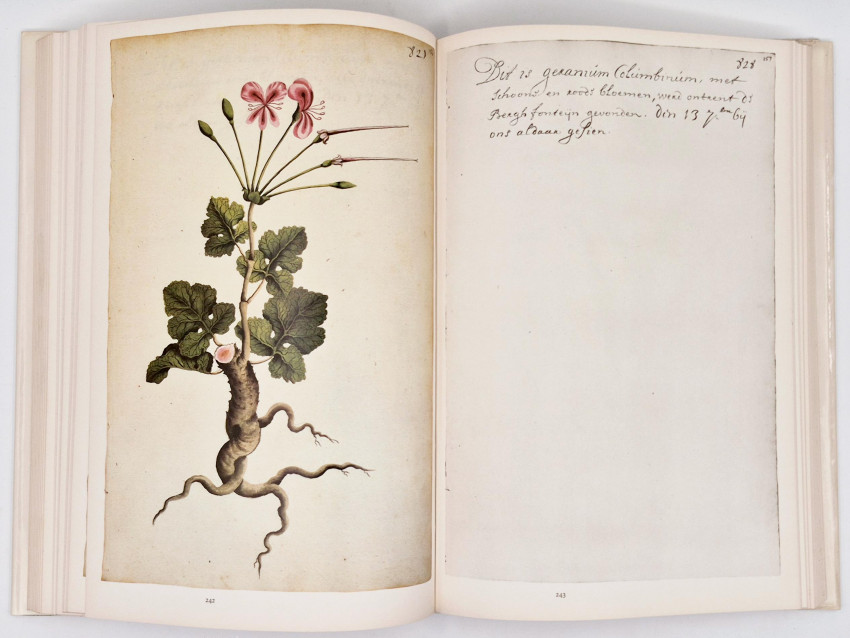 821
828
Dit is geranium Columbinum, met
schoone en roode bloemen, wird ontrent de
Bergh fonteijn gevonden. Din 13 7.ber bij
ons aldaar gesien.
242
243